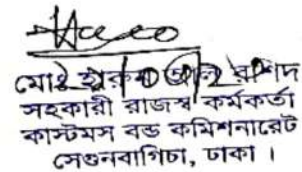 মোঃ রশিদ
সহকারী রাজস্ব কর্মকর্তা
কাস্টমস বন্ড কমিশনারেট
সেগুনবাগিচা, ঢাকা ।